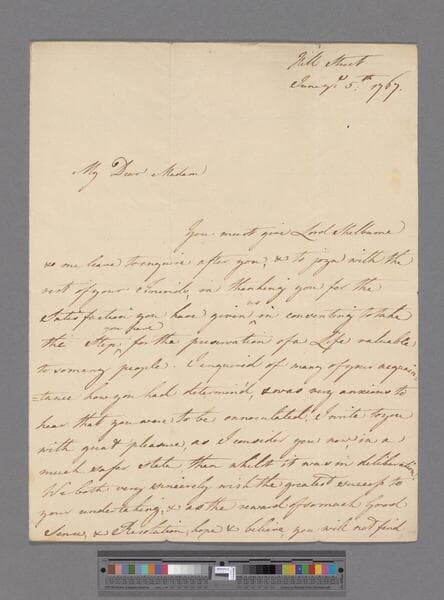 Hill Street
June ye 5th 1767.
My Dear Madam
You must give Lord Shelburne
& me leave to enquire after you, & to joyn with the
rest of your Friends, in thanking you for the
Satisfaction you have given us in consenting to take
the Step you have for the preservation of a Life valuable
to so many people. I enquired of many of your acquain
=tance how you had determin'd, & was very anxious to
hear that you were to be innoculated. I write to you
with great pleasure, as I consider you now, in a
much safer state, then whilst it was in deliberation
We both very sincerely wish the greatest success to
your undertaking, & as the reward of so much Good
Sense, & Resolution, hope & believe you will not find